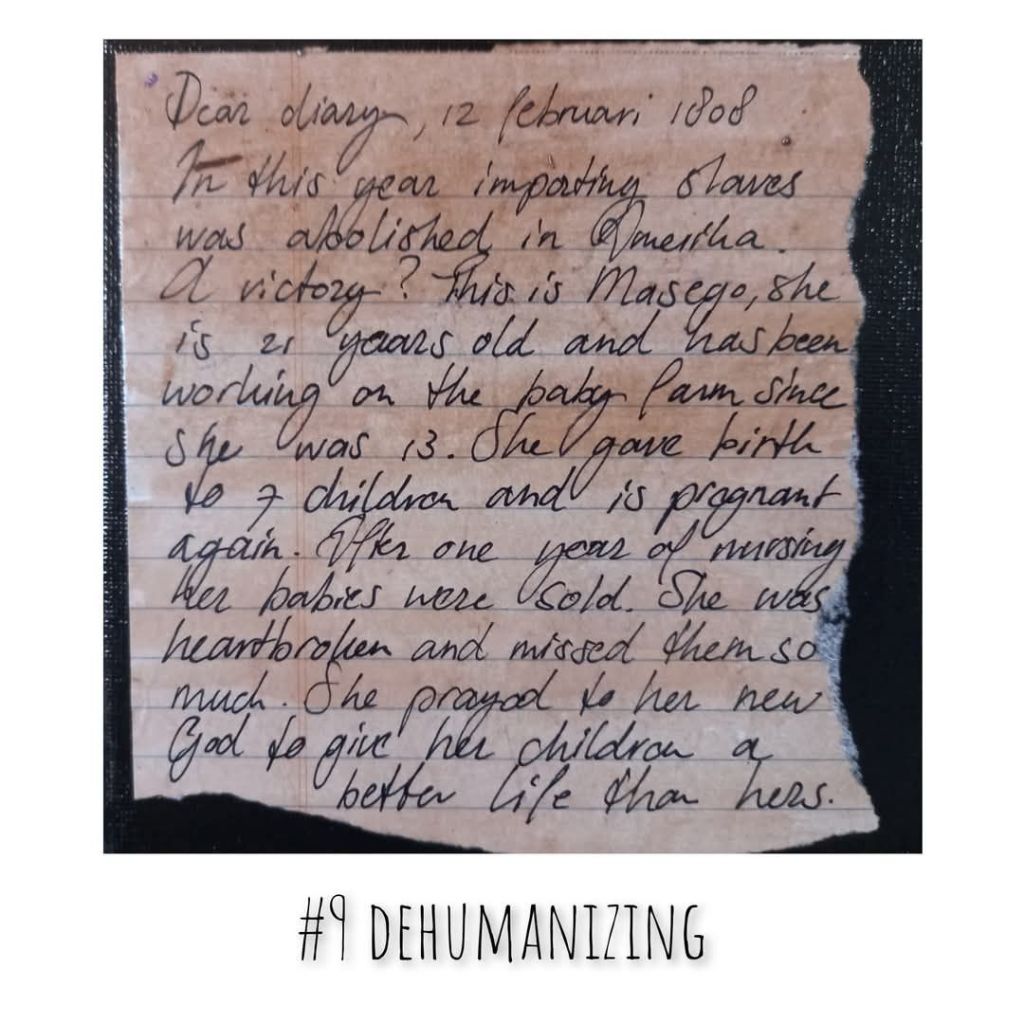 Dear diary, 12 februari 1808
In this year importing slaves
was abolished in Amerika.
A victory? This is Masego, she
is 21 yaars old and has been
working on the baby farm since
she was 13. She gave birth
to 7 children and is pregnant
again. After one year of nursing
her babies were sold. She was
heartbroken and missed them so
much. She prayed to her new
God to give her children a
better life than hers.
#9 DEHUMANIZING